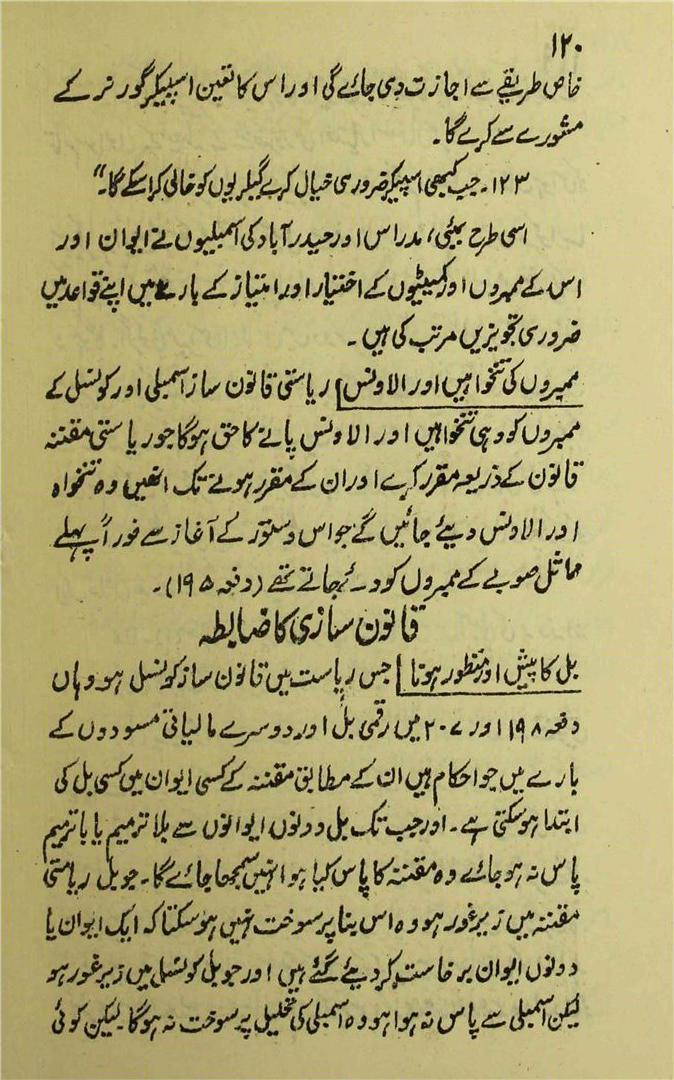 ۱۲۰
خاص طریقے سے اجازت دی جائے گی اور اس کا تعین اسپیکر گورنر کے
مشورے سے کرے گا۔
۱۲۳۔ جب کبھی اسپیکر ضروری خیال کرے گیلریوں کو خالی کرا سکے گا۔"
اسی طرح بمبئی، مدراس اور حیدرآباد کی اسمبلیوں نے ایوان اور
اس کے ممبروں اور کمیٹیوں کے اختیار اور امتیاز کے بارے میں اپنے قواعد میں
ضروری تجویزیں مرتب کی ہیں۔
ممبروں کی تنخواہیں اور الاونس ریاستی قانون ساز اسمبلی اور کونسل کے
ممبروں کو وہی تنخواہیں اور الاونس پانے کا حق ہوگا جو ریاستی مقننہ
قانون کے ذریعہ مقرر کرے اور ان کے مقرر ہونے تک انھیں وہ تنخواہ
اور الاونس دیئے جائیں گے جو اس دستور کے آغاز سے فوراً پہلے
مماثل صوبے کے ممبروں کو دئے جاتے تھے (دفعہ ۱۹۵)۔
قانون سازی کا ضابطہ
بل کا پیش اور منظور ہونا جس ریاست میں قانون ساز کونسل ہو وہاں
دفعہ ۱۹۸ اور ۲۰۷ میں رقمی بل اور دوسرے مالیاتی مسودوں کے
بارے میں جو احکام ہیں ان کے مطابق مقننہ کے کسی ایوان میں کسی بل کی
ابتدا ہو سکتی ہے۔ اور جب تک بل دونوں ایوانوں سے بلا ترمیم یا با ترمیم
پاس نہ ہو جائے وہ مقننہ کا پاس کیا ہوا نہیں سمجھا جائے گا۔ جو بل ریاستی
مقننہ میں زیر غور ہو وہ اس بنا پر سوخت نہیں ہو سکتا کہ ایک ایوان یا
دونوں ایوان برخاست کر دیئے گئے ہیں اور جو بل کونسل میں زیر غور ہو
لیکن اسمبلی سے پاس نہ ہوا ہو وہ اسمبلی کی تحلیل پر سوخت نہ ہوگا۔ لیکن کوئی